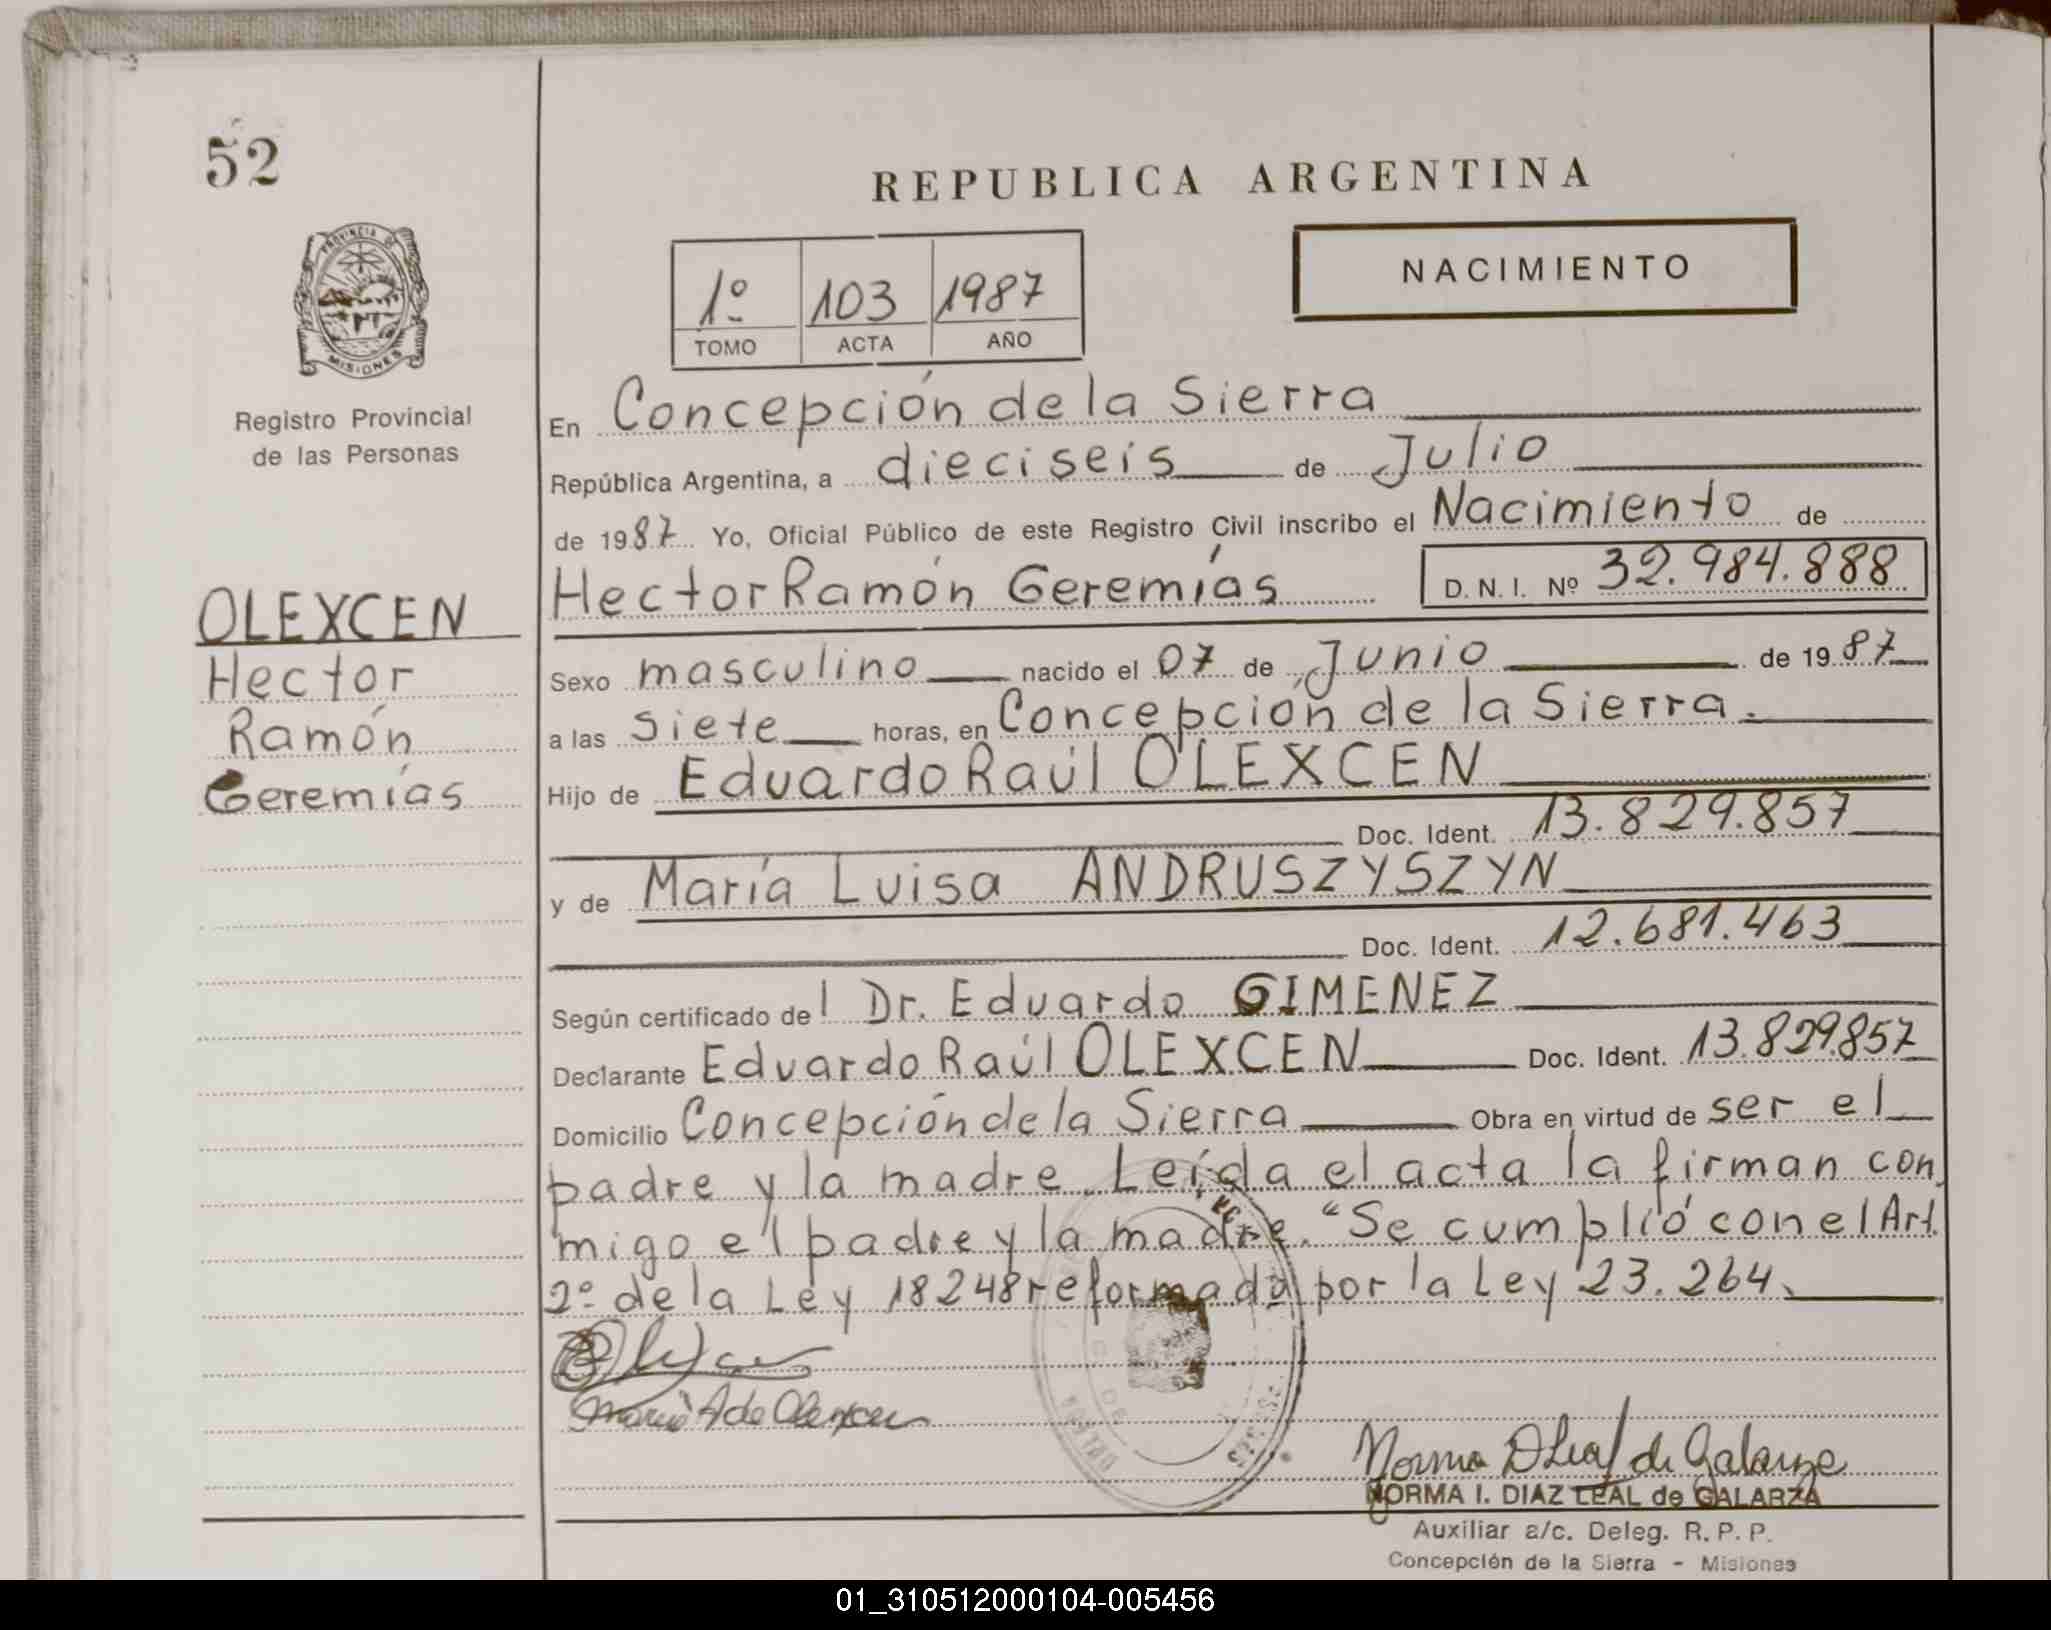 52
REPUBLICA ARGENTINA
PROVINCIA DE
MISIONES
Registro Provincial
de las Personas
NACIMIENTO
1º 103 1987
TOMO ACTA AÑO
En Concepción de la Sierra
República Argentina, a dieciseis de Julio
de 1987 Yo, Oficial Público de este Registro Civil inscribo el Nacimiento de
Hector Ramón Geremías D. N. I. Nº 32.984.888
OLEXCEN
Hector
Ramón
Geremías
Sexo masculino nacido el 07 de Junio de 1987
a las siete horas, en Concepción de la Sierra.
Hijo de Eduardo Raúl OLEXCEN
Doc. Ident. 13.829.857
y de María Luisa ANDRUSZYSZYN
Doc. Ident. 12.681.463
Según certificado del Dr. Eduardo GIMENEZ
Declarante Eduardo Raúl OLEXCEN Doc. Ident. 13.829.857
Domicilio Concepción de la Sierra Obra en virtud de ser el
padre y la madre. Leída el acta la firman con
migo el padre y la madre. "Se cumplió con el Art.
2º de la Ley 18248 reformada por la Ley 23.264.
Maria A de Olexcen
Norma D Leal de Galarza
NORMA I. DIAZ LEAL de GALARZA
Auxiliar a/c. Deleg. R. P. P.
Concepción de la Sierra - Misiones
01_310512000104-005456